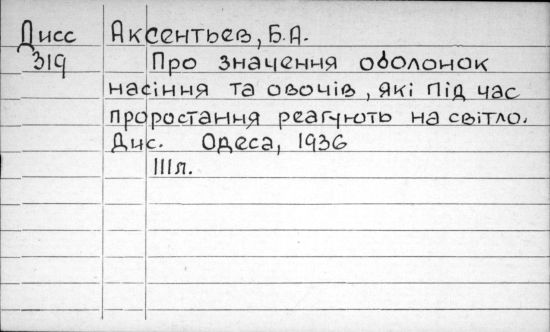 Дисс Аксентьев, Б.А.
319 Про значення оболонок
насіння та овочів, які під час
проростання реагують на світло.
Дис. Одеса, 1936
111л.